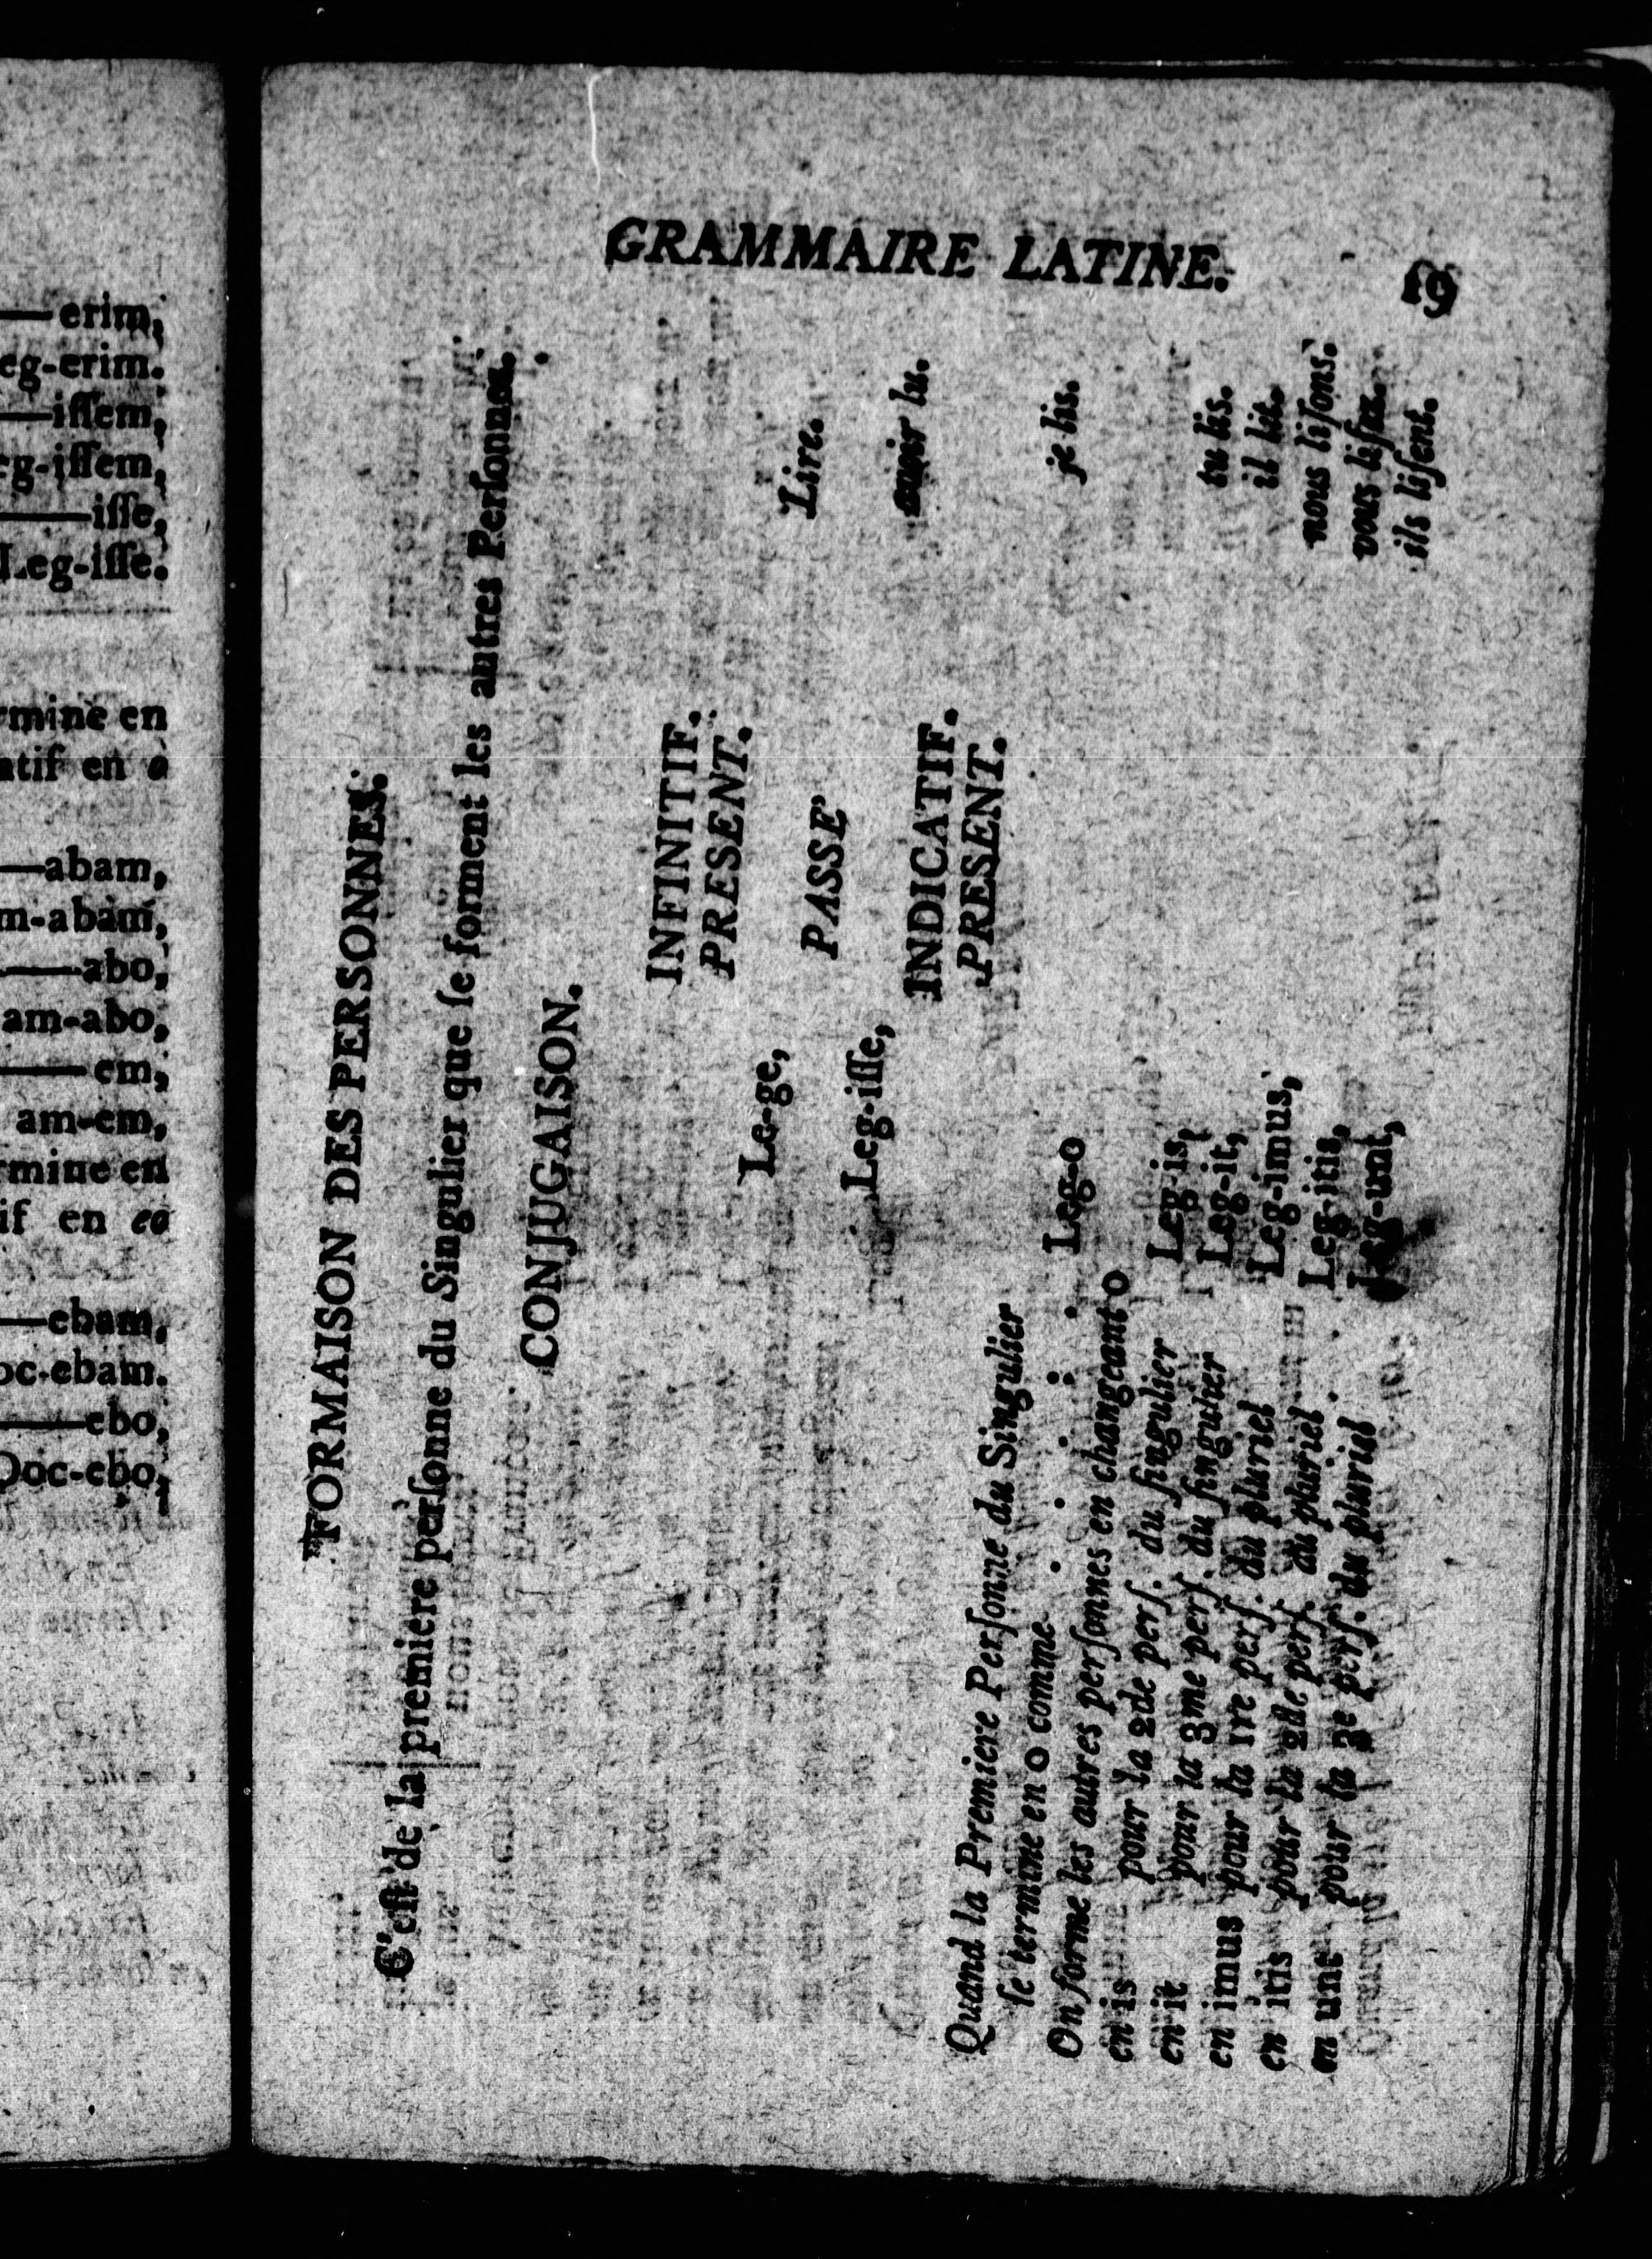 —erim,
eg-erim.
—iſſem,
eg-iſſem,
—iſſe,
Leg-iſſe.
rmine en
atif en o
—abam,
m-abam,
—abo,
am-abo,
—em,
am-em,
rmine en
if en eo
—ebam,
oc-ebam.
—ebo,
Doc-ebo,
GRAMMAIRE LATINE. 19
FORMAISON DES PERSONNES.
C'eſt de la premiere perſonne du Singulier que ſe forment les autres Perſonnes.
CONJUGAISON.
INFINITIF.
PRESENT.
Le-ge, Lire.
PASSE'
Leg-iſſe, avoir lu.
INDICATIF.
PRESENT.
Quand la Premiere Perſonne du Singulier
ſe termine en o comme . . . . . Leg-o je lis.
On forme les autres perſonnes en changeant o
en is pour la 2de perſ. du ſingulier Leg-is, tu lis.
en it pour la 3me perſ. du ſingulier Leg-it, il lit.
en imus pour la 1re perſ. du pluriel Leg-imus, nous liſons.
en itis pour la 2de perſ. du pluriel . Leg-itis, vous liſez.
en unt pour la 3e perſ. du pluriel Leg-unt, ils liſent.